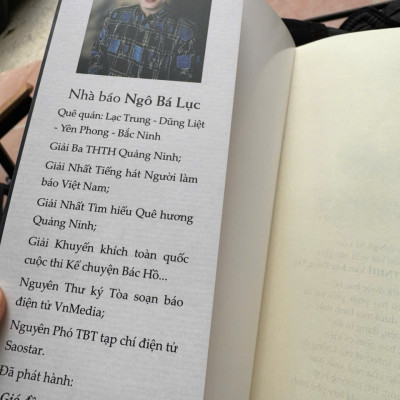 Nhà báo Ngô Bá Lục
Quê quán: Lạc Trung - Dũng Liệt
- Yên Phong - Bắc Ninh
Giải Ba THTH Quảng Ninh;
Giải Nhất Tiếng hát Người làm
báo Việt Nam;
Giải Nhất Tìm hiểu Quê hương
Quảng Ninh;
Giải Khuyến khích toàn quốc
cuộc thi Kể chuyện Bác Hồ...
Nguyên Thư ký Tòa soạn báo
điện tử VnMedia;
Nguyên Phó TBT tạp chí điện tử
Saostar.
Đã phát hành: